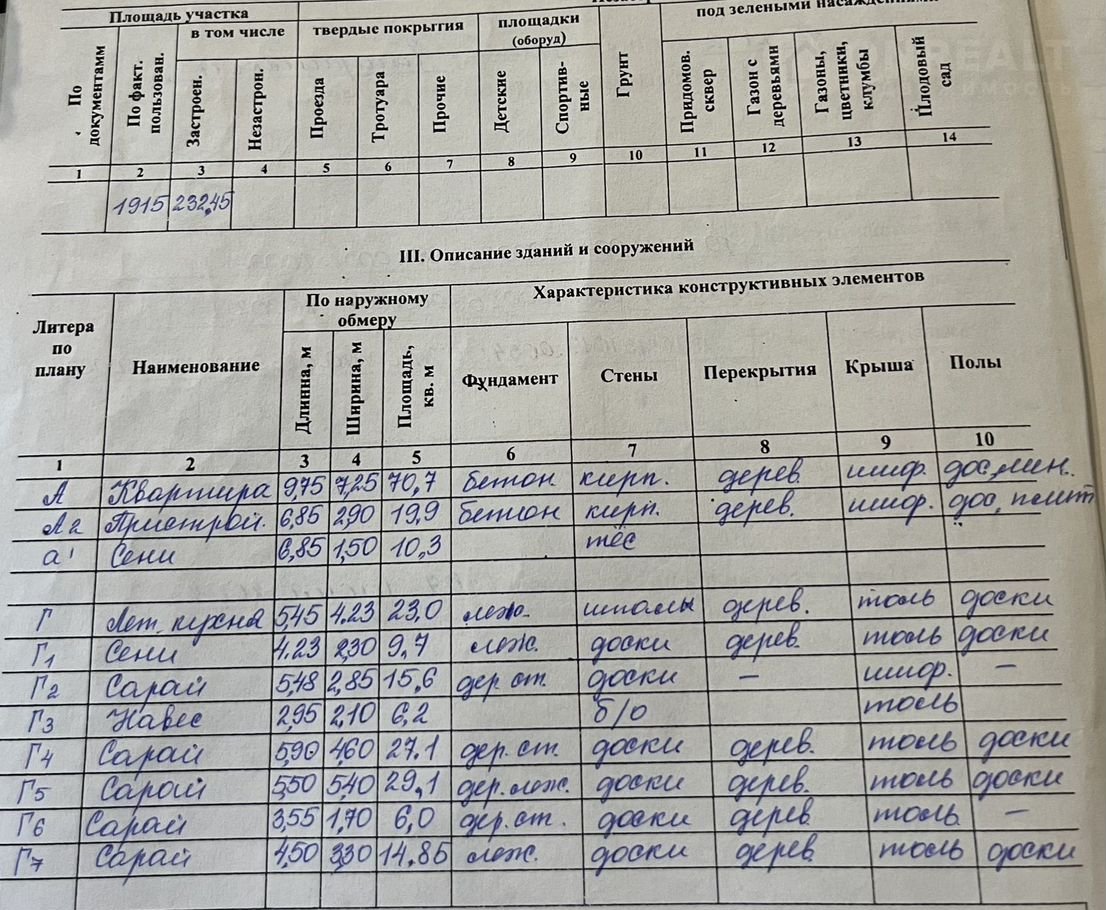 Площадь участка
под зелеными насаждениями
По документамм
По факт. пользован.
в том числе
Застроен.
Незастроен.
твердые покрытия
Проезда
Тротуара
Прочие
площадки
(оборуд)
Детские
Спортив-
ные
Грунт
Придомов. сквер
Газон с деревьями
Газоны, цветники, клумбы
Плодовый сад
1 2 3 4 5 6 7 8 9 10 11 12 13 14
1915 232,45
III. Описание зданий и сооружений
Литера
по
плану
Наименование
По наружному
обмеру
Длинна, м
Ширина, м
Площадь, кв. м
Характеристика конструктивных элементов
Фундамент
Стены
Перекрытия
Крыша
Полы
1 2 3 4 5 6 7 8 9 10
А Квартира 9,75 7,25 70,7 бетон кирп. дерев. шиф. дос, лин.
А2 Пристрой. 6,85 2,90 19,9 бетон кирп. дерев. шиф. дос, плит
а1 Сени 6,85 1,50 10,3 тёс
Г Лет. кухня 5,45 4.23 23,0 леж. шпалы дерев. толь доски
Г1 Сени 4.23 2,30 9,7 леж. доски дерев. толь доски
Г2 Сарай 5,48 2,85 15,6 дер. ст. доски – шиф. –
Г3 Навес 2,95 2,10 6,2 б/о толь
Г4 Сарай 5,90 4,60 27.1 дер. ст. доски дерев. толь доски
Г5 Сарай 5,50 5,40 29,1 дер. леж. доски дерев. толь доски
Г6 Сарай 3,55 1,70 6,0 дер. ст. доски дерев. толь –
Г7 Сарай 4,50 3,30 14.85 леж. доски дерев. толь доски